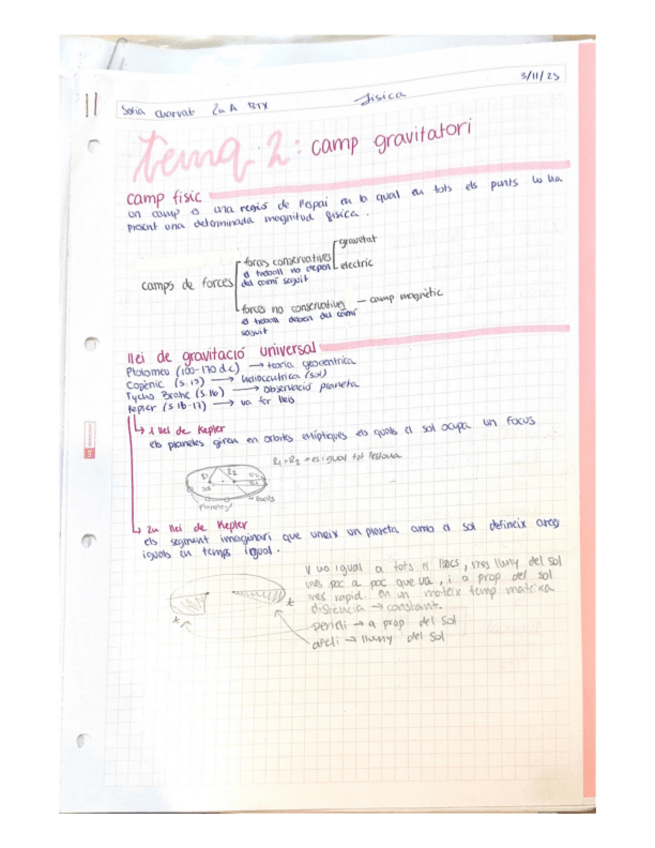 3/11/23
Sofia Charvat 2n A BTX física
tema 2: camp gravitatori
camp físic
un camp és una regió de l'espai en la qual en tots els punts hi ha
present una determinada magnitud física.
gravetat
forces conservatives
el treball no depen
electric
camps de forces
del camí seguit
forces no conservatives — camp magnètic
el treball depen del camí
seguit
llei de gravitació universal
Ptolomeu (100-170 d.c) → teoria geocentrica
Copèrnic (s.15) → heliocentrica (sol)
Tycho Brahe (s.16) → observació planeta
Kepler (s.16-17) → va fer lleis
1 llei de Kepler
els planetes giran en orbites elíptiques els quals el sol ocupa un focus
R1+R2 = es igual tot l'estona
R1 R2
planetes
focus
2n llei de Kepler
els segment imaginari que uneix un planeta amb el sol defineix àrees
iguals en temps igual.
V no igual a tots els llocs, mes lluny del sol
mes poc a poc que va, i a prop del sol
mes rapid. en un mateix temp mateixa
distancia → constant.
t
t
pereli → a prop del sol
afeli → lluny del sol